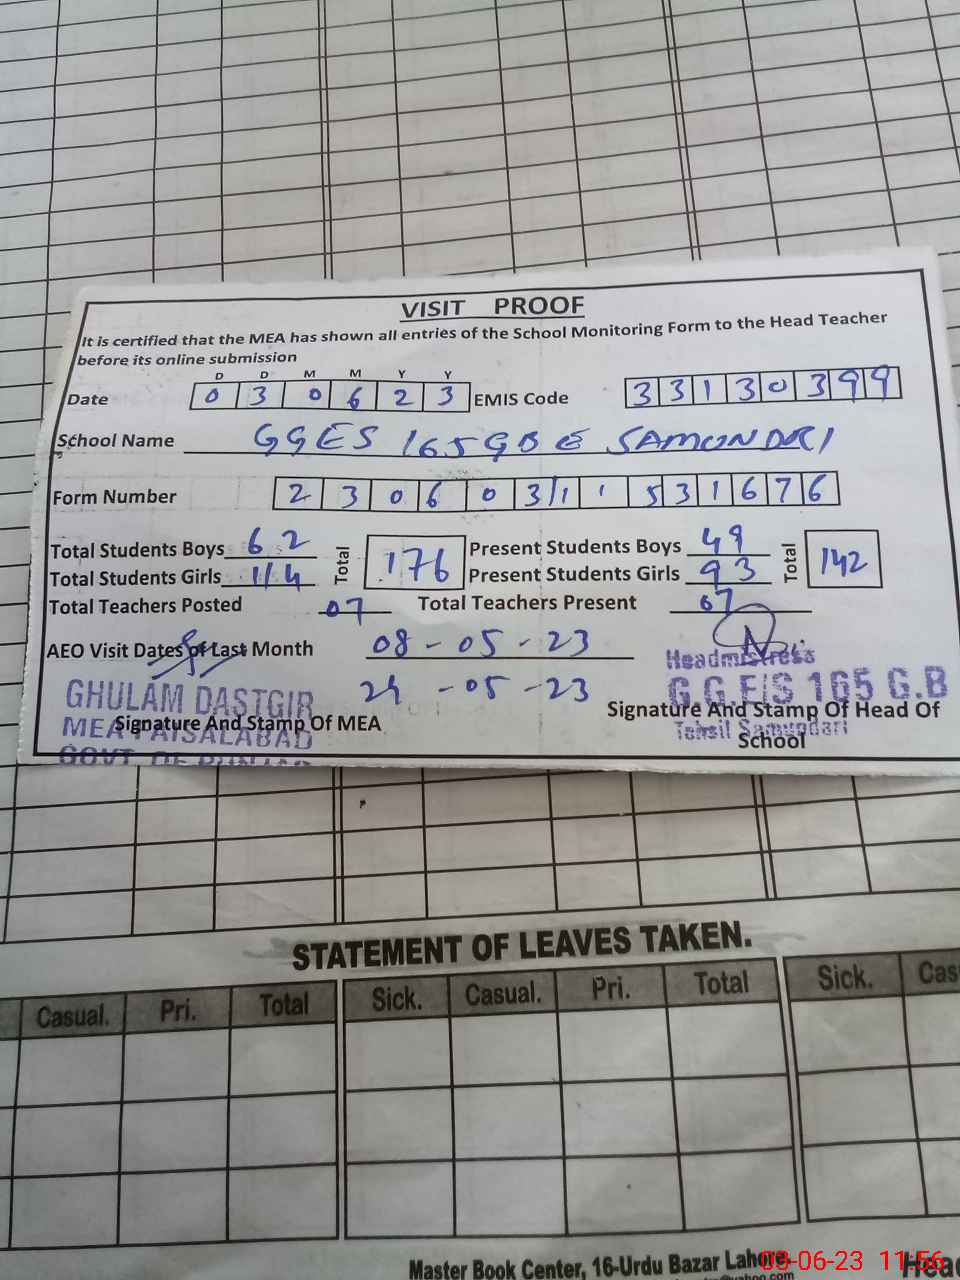 VISIT PROOF
It is certified that the MEA has shown all entries of the School Monitoring Form to the Head Teacher
before its online submission
D D M M Y Y
Date 0 3 0 6 2 3 EMIS Code 3 3 1 3 0 3 9 9
School Name GGES 165 GB E SAMUNDRI
Form Number 2 3 0 6 0 3 1 1 5 3 1 6 7 6
Total Students Boys 62 Total 176 Present Students Boys 49 Total 142
Total Students Girls 114 Present Students Girls 93
Total Teachers Posted 07 Total Teachers Present 07
AEO Visit Dates of Last Month 08-05-23
Headmistress
GHULAM DASTGIR 29-05-23 G.G.E/S 165 G.B
MEA FAISALABAD
Signature And Stamp Of MEA Signature And Stamp Of Head Of
Tehsil Samundari
School
STATEMENT OF LEAVES TAKEN.
Casual. Pri. Total Sick. Casual. Pri. Total Sick. Cas
Master Book Center, 16-Urdu Bazar Lahore. Hea
03-06-23 11:56